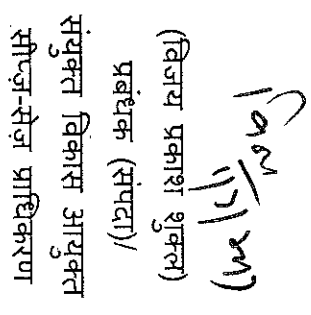 (विजय प्रकाश शुक्ल)
प्रबंधक (संपदा)/
संयुक्त विकास आयुक्त
सीप्ज़-सेज़ प्राधिकरण